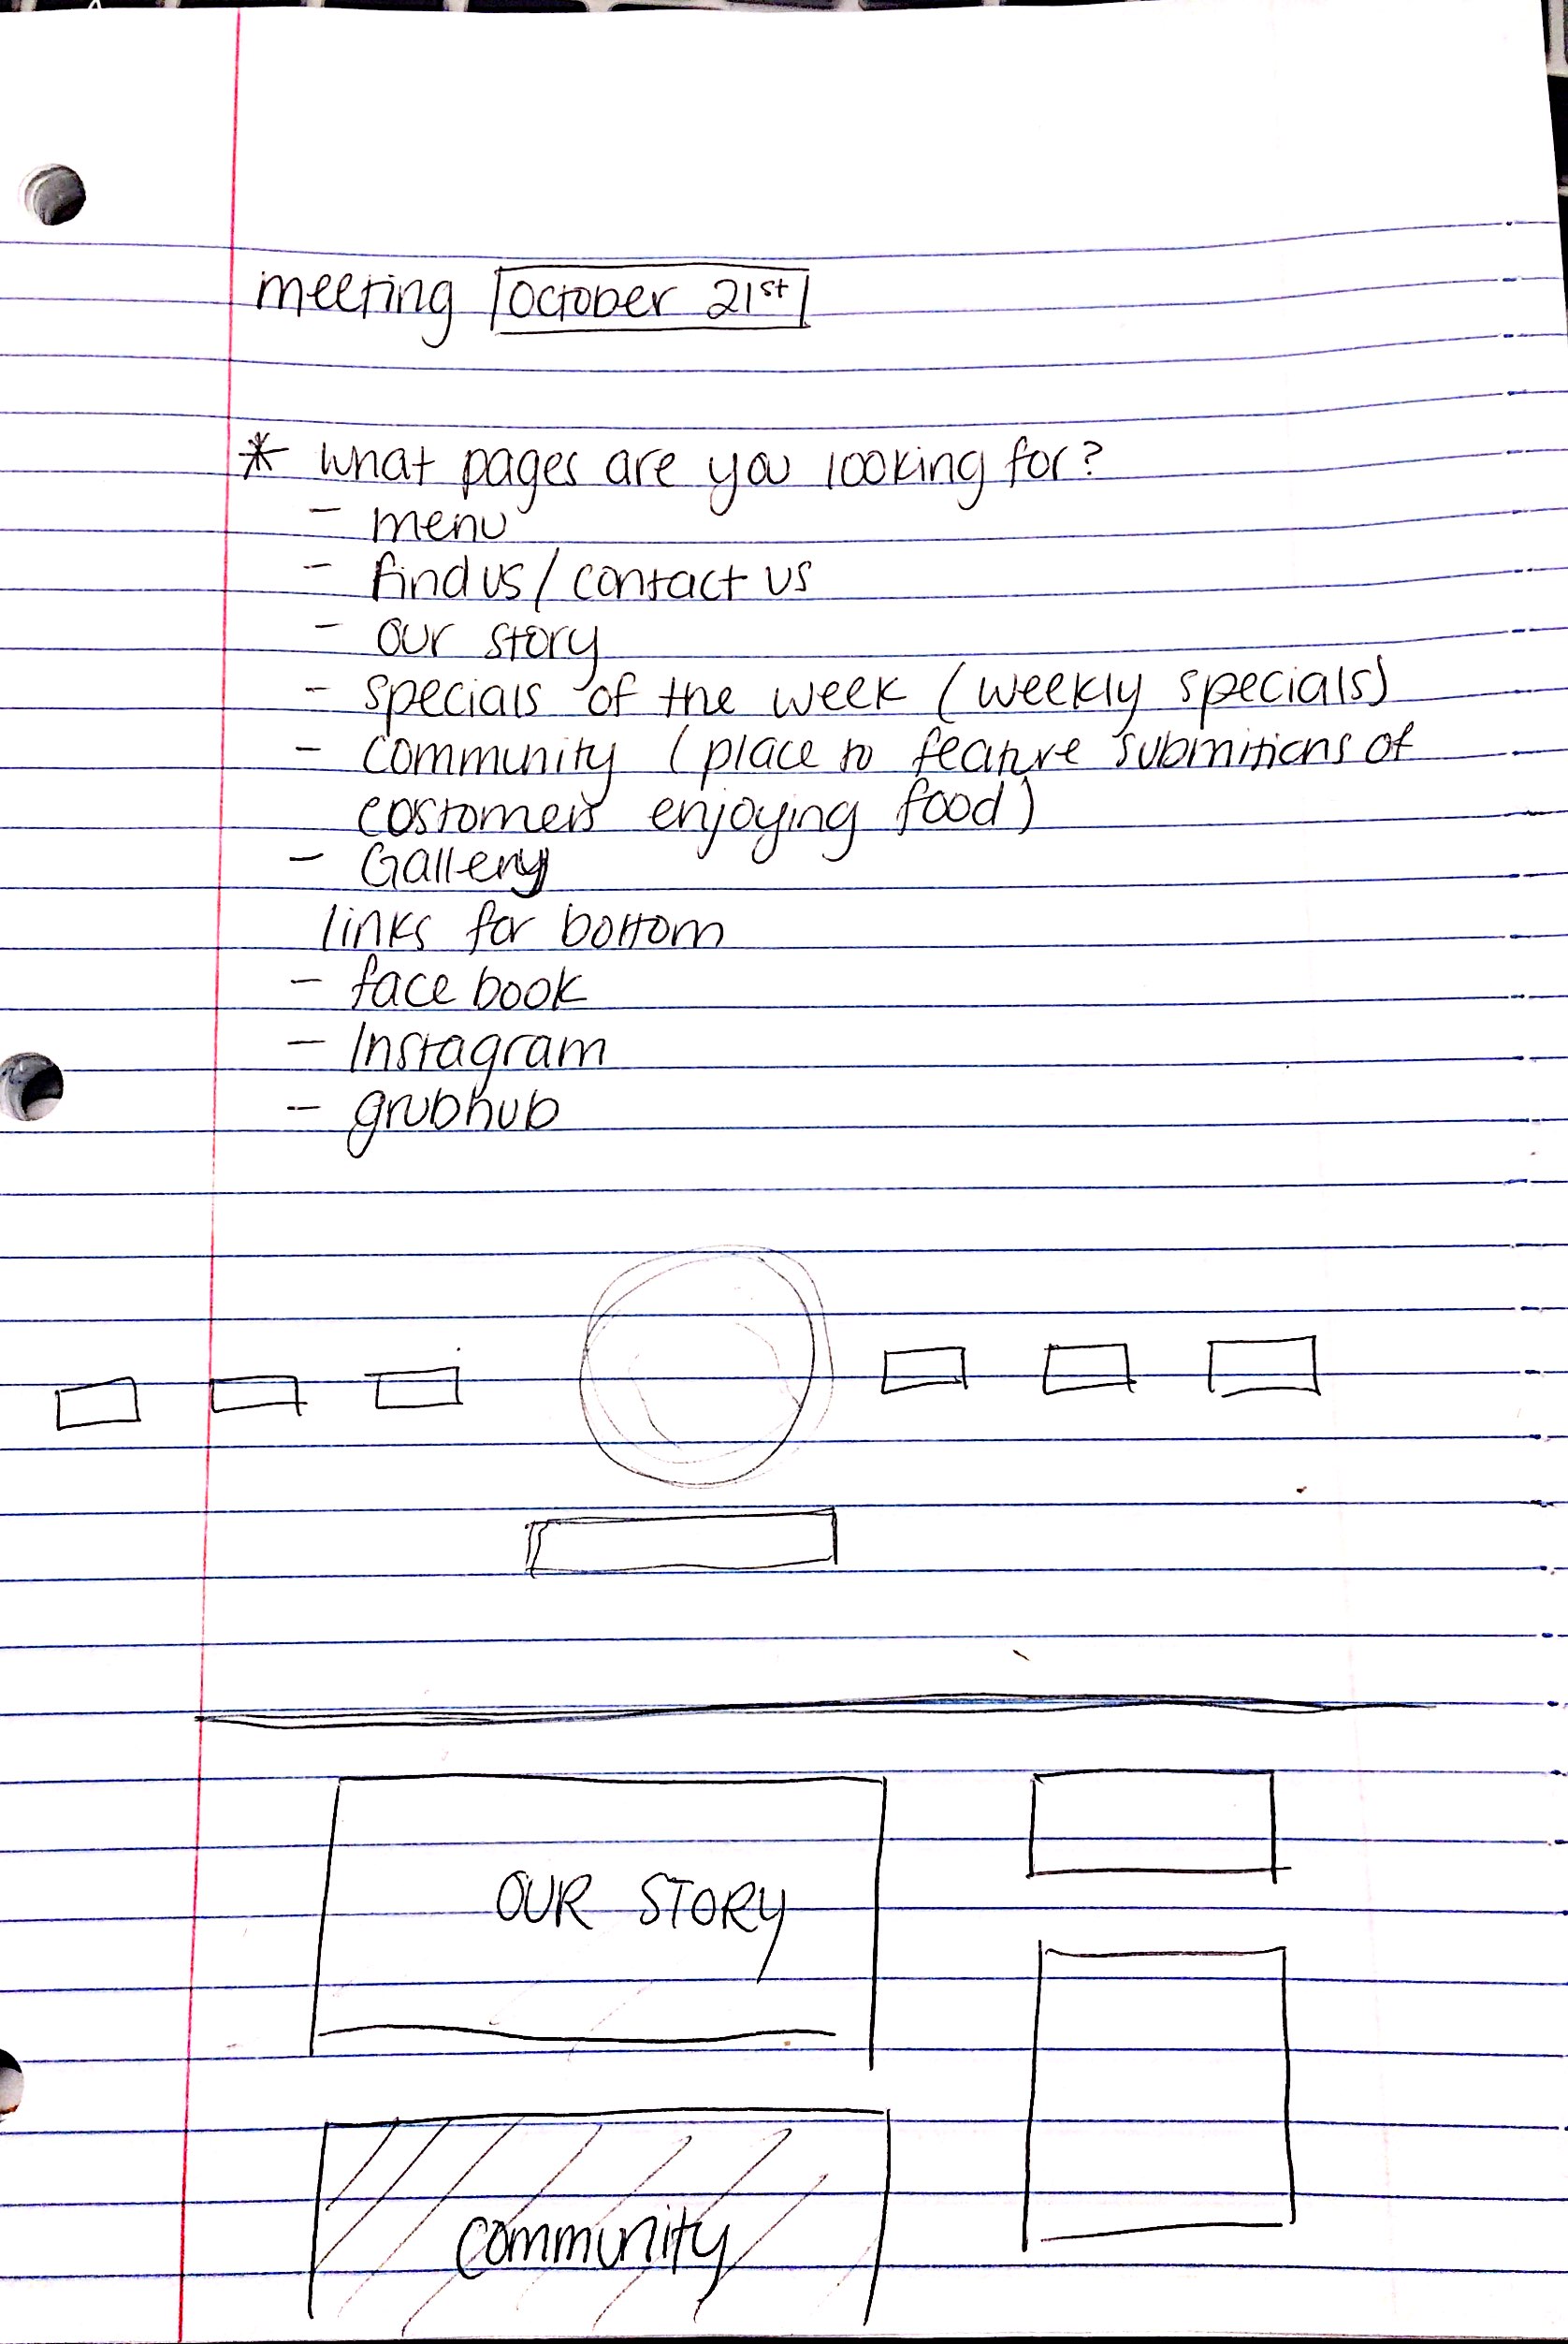 meeting October 21st
* what pages are you looking for?
- menu
- find us / contact us
- our story
- specials of the week (weekly specials)
- community (place to feature submitions of
costomers enjoying food)
- Gallery
links for bottom
- face book
- Instagram
- grubhub
OUR STORY
community